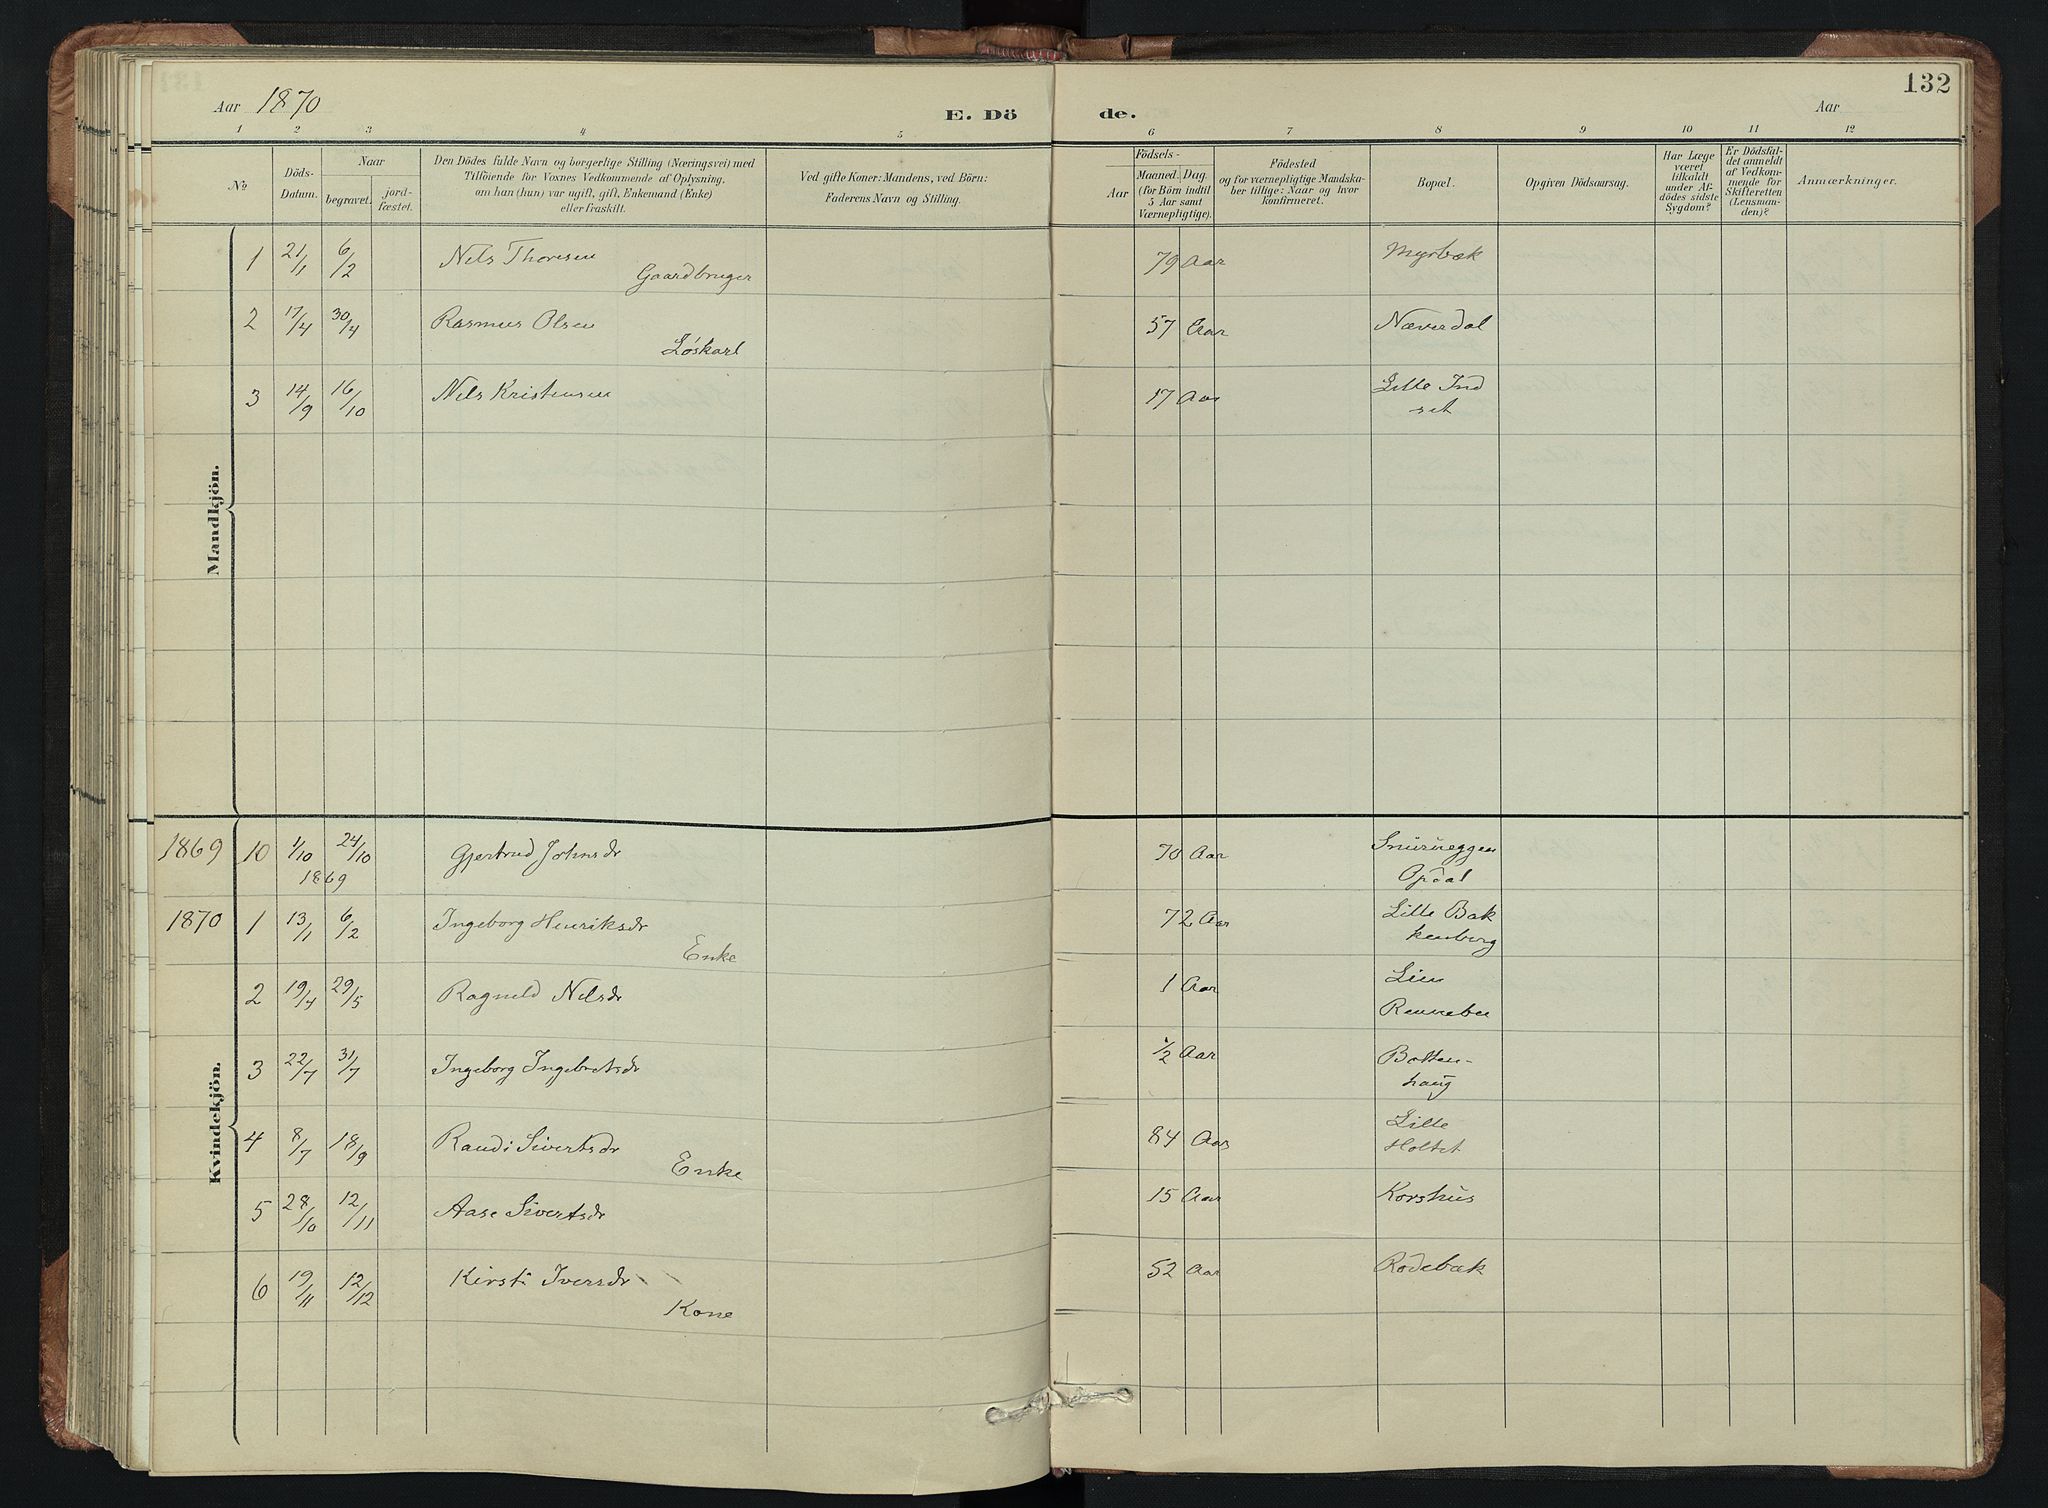 132
Aar 1870
E. Dö de.
Aar
1 2 3 4 5 6 7 8 9 10 11 12
No
Döds-
Datum.
Naar
begravet.
jord-
fæstet.
Den Dödes fulde Navn og borgerlige Stilling (Næringsvei) med
Tilföiende for Voxnes Vedkommende af Oplysning,
om han (hun) var ugift, gift, Enkemand (Enke)
eller fraskilt.
Ved gifte Koner: Mandens, ved Börn:
Faderens Navn og Stilling.
Födsels-
Aar
Maaned. Dag.
(for Börn indtil
5 Aar samt
Værnepligtige).
Födested
og for værnepligtige Mandska-
ber tillige: Naar og hvor
konfirmeret.
Bopæl.
Opgiven Dödsaarsag.
Har Læge
været
tilkaldt
under Af-
dödes sidste
Sygdom?
Er Dödsfal-
det anmeldt
af Vedkom-
mende for
Skifteretten
(Lensman-
den)?
Anmærkninger.
Mandkjön.
1 21/1 6/2 Nils Thoresen 79 Aar Myrbæk
Gaardbruger
2 17/4 30/4 Rasmus Olsen 57 Aar Næverdal
Løskarl
3 14/9 16/10 Nils Kristensen 17 Aar Lille Ind
set
Kvindekjön.
1869 10 1/10 24/10 Gjertrud Johnsdr 70 Aar Snurueggen
1869 Opdal
1870 1 13/1 6/2 Ingeborg Henriksdr 72 Aar Lille Bak
Enke kenberg
2 19/4 29/5 Ragnild Nilsdr 1 Aar Lien
Rennebu
3 22/7 31/7 Ingeborg Ingebretsdr 1/2 Aar Botten-
haug
4 8/7 18/9 Randi Sivertsdr 84 Aar Lille
Enke Holtet
5 28/10 12/11 Aase Sivertsdr 15 Aar Korshus
6 19/11 12/12 Kirsti Iversdr 52 Aar Rødebæk
Kone